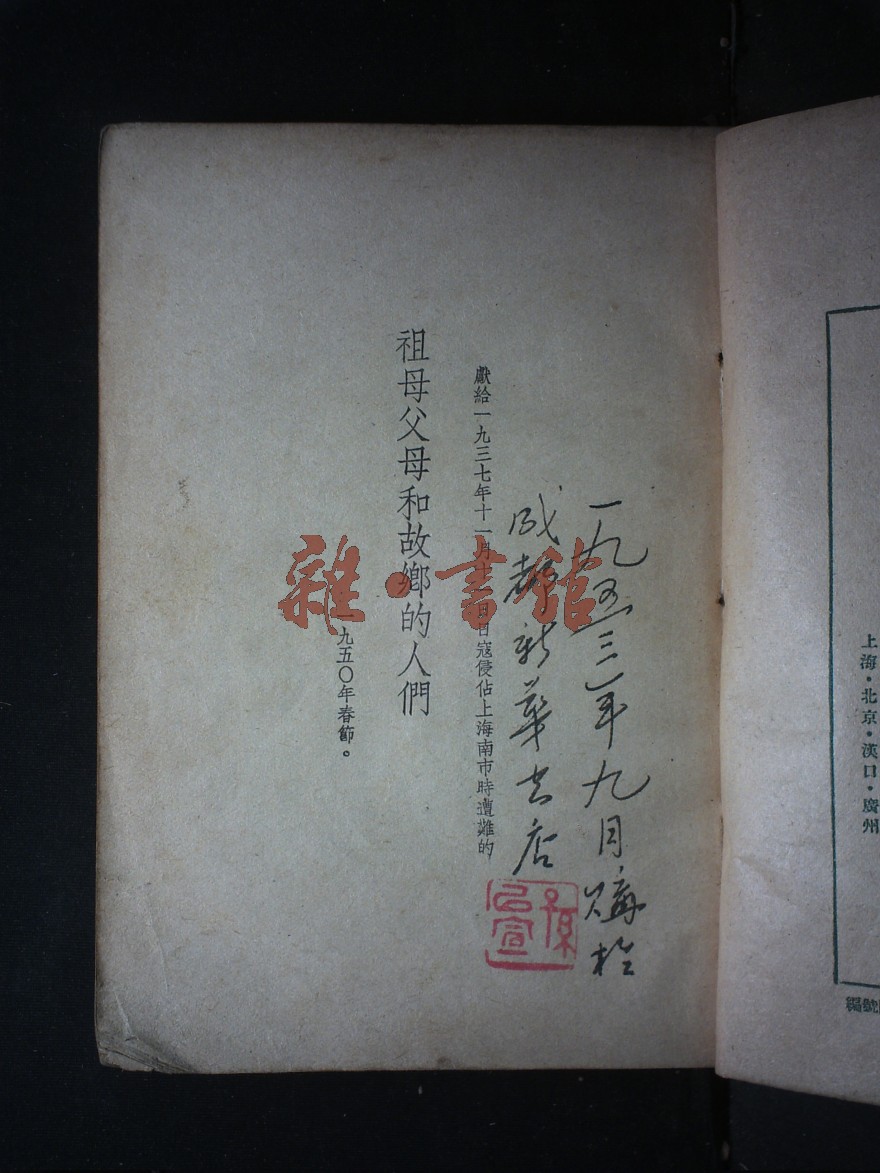 一九五三年九月購於
成都新華书店
孫
宣
獻給一九三七年十一月十一日日寇侵佔上海南市時遭難的
祖母父母和故鄉的人們
一九五〇年春節。
雜·書館
上海·北京·漢口·廣州